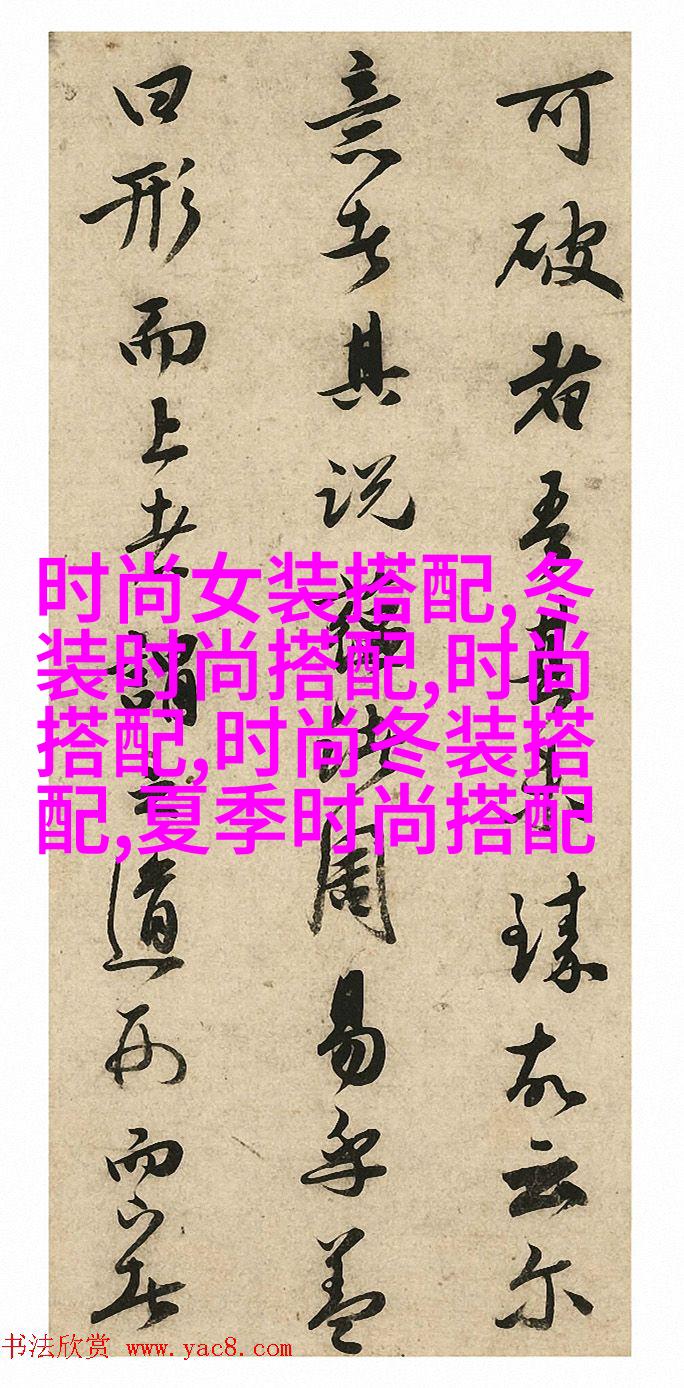 可破者吾臻故云尔
意者其说周易乎盖
曰形而上者謂之道形而下者
时尚女装搭配,冬
装时尚搭配,时尚
搭配,时尚冬装搭
配,夏季时尚搭配
书法欣赏 www.yac8.com